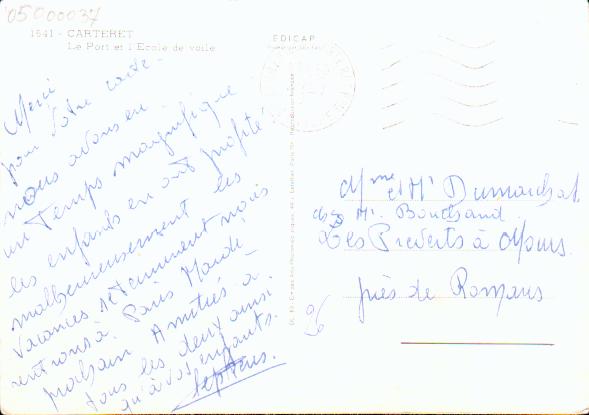 05000037
1641 - CARTERET
Le Port et l'Ecole de voile
EDICAP
Merci
pour votre carte.
nous avons eu
un Temps magnifique
les enfants en ont profité
malheureusement les
vacances se terminent nous
rentrons à Paris Mardi
prochain Amitiés à
tous les deux ainsi
qu'à vos enfants.
Mme et Mr
chez Mr.
à Mours
près de Romans
26